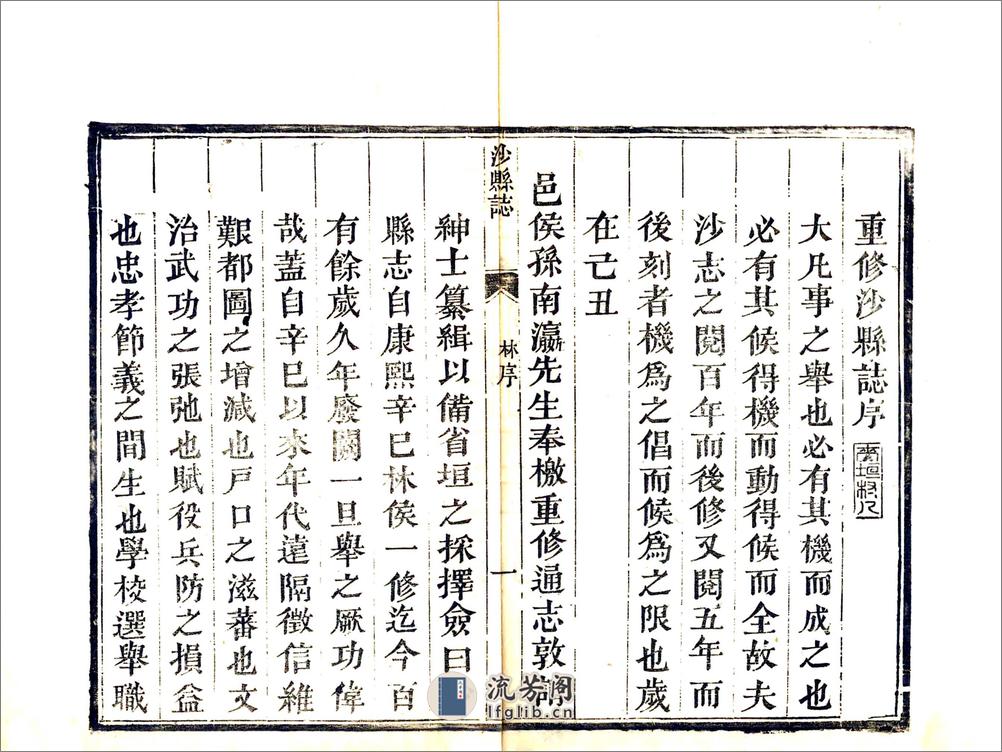 重修沙縣誌序
大凡事之舉也必有其機而成之也
必有其候得機而動得候而全故夫
沙志之閱百年而後修又閱五年而
後刻者機為之倡而候為之限也歲
在己丑
邑侯孫南瀛先生奉檄重修通志敦請
沙縣誌
林序
一
紳士纂緝以備省垣之採擇僉曰
縣志自康熙辛巳林侯一修迄今百
有餘歲久年廢闕一旦舉之厥功偉
哉蓋自辛巳以來年代遠隔徵信維
艱都圖之增減也戸口之滋蕃也文
治武功之張弛也賦役兵防之損益
也忠孝節義之間生也學校選舉職
流芳閣
lfglib.cn